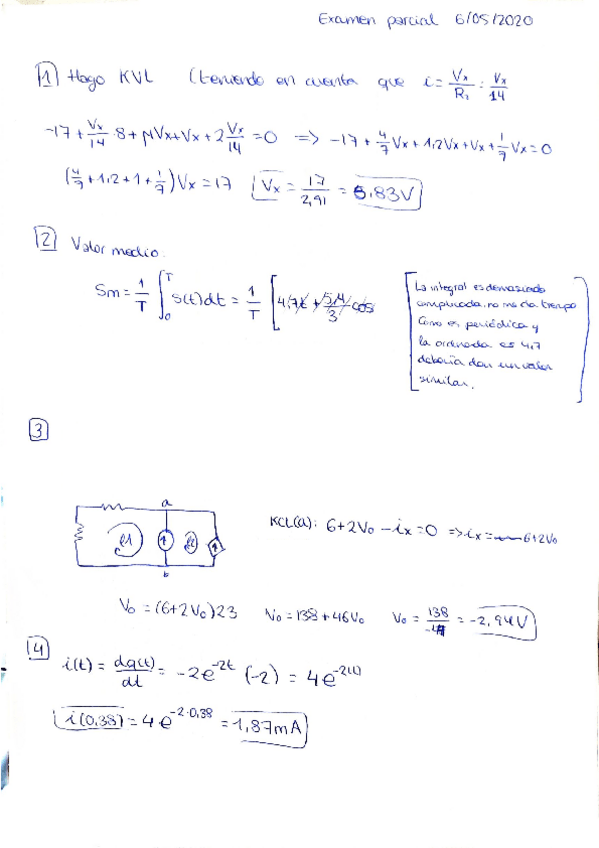 Examen parcial 6/05/2020
1 Hago KVL (teniendo en cuenta que i = Vx/R1 = Vx/14
-17 + Vx/14 · 8 + μVx + Vx + 2 Vx/14 = 0 => -17 + 4/7 Vx + 1,2Vx + Vx + 1/7 Vx = 0
(4/7 + 1,2 + 1 + 1/7) Vx = 17 Vx = 17/2,91 = 5,83V
2 Valor medio:
Sm = 1/T ∫0T s(t)dt = 1/T [4,7t + 5,4/3 cos
La integral es demasiado
complicada, no me da tiempo
Como es periódica y
la ordenada es 4,7
debería dar un valor
similar.
3
a
KCL(a): 6+2Vo - ix = 0 => ix = 6+2Vo
b
Vo = (6+2Vo)23 Vo = 138 + 46Vo Vo = 138/-47 = -2,94V
4
i(t) = dq(t)/dt = -2e^-2t (-2) = 4e^-2(t)
i(0,38) = 4e^-2·0,38 = 1,87mA